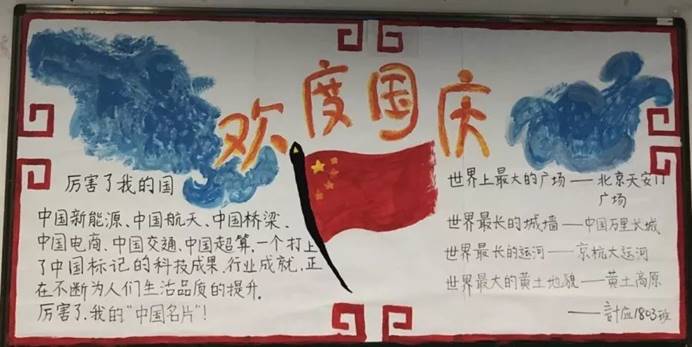 欢度国庆
厉害了我的国
中国新能源、中国航天、中国桥梁、
中国电商、中国交通、中国超算,一个打上
了中国标记的科技成果,行业成就,正
在不断为人们生活品质的提升.
厉害了,我的"中国名片"!
世界上最大的广场——北京天安门
广场
世界最长的城墙——中国万里长城
世界最长的运河——京杭大运河
世界最大的黄土地貌——黄土高原
——計应1803班